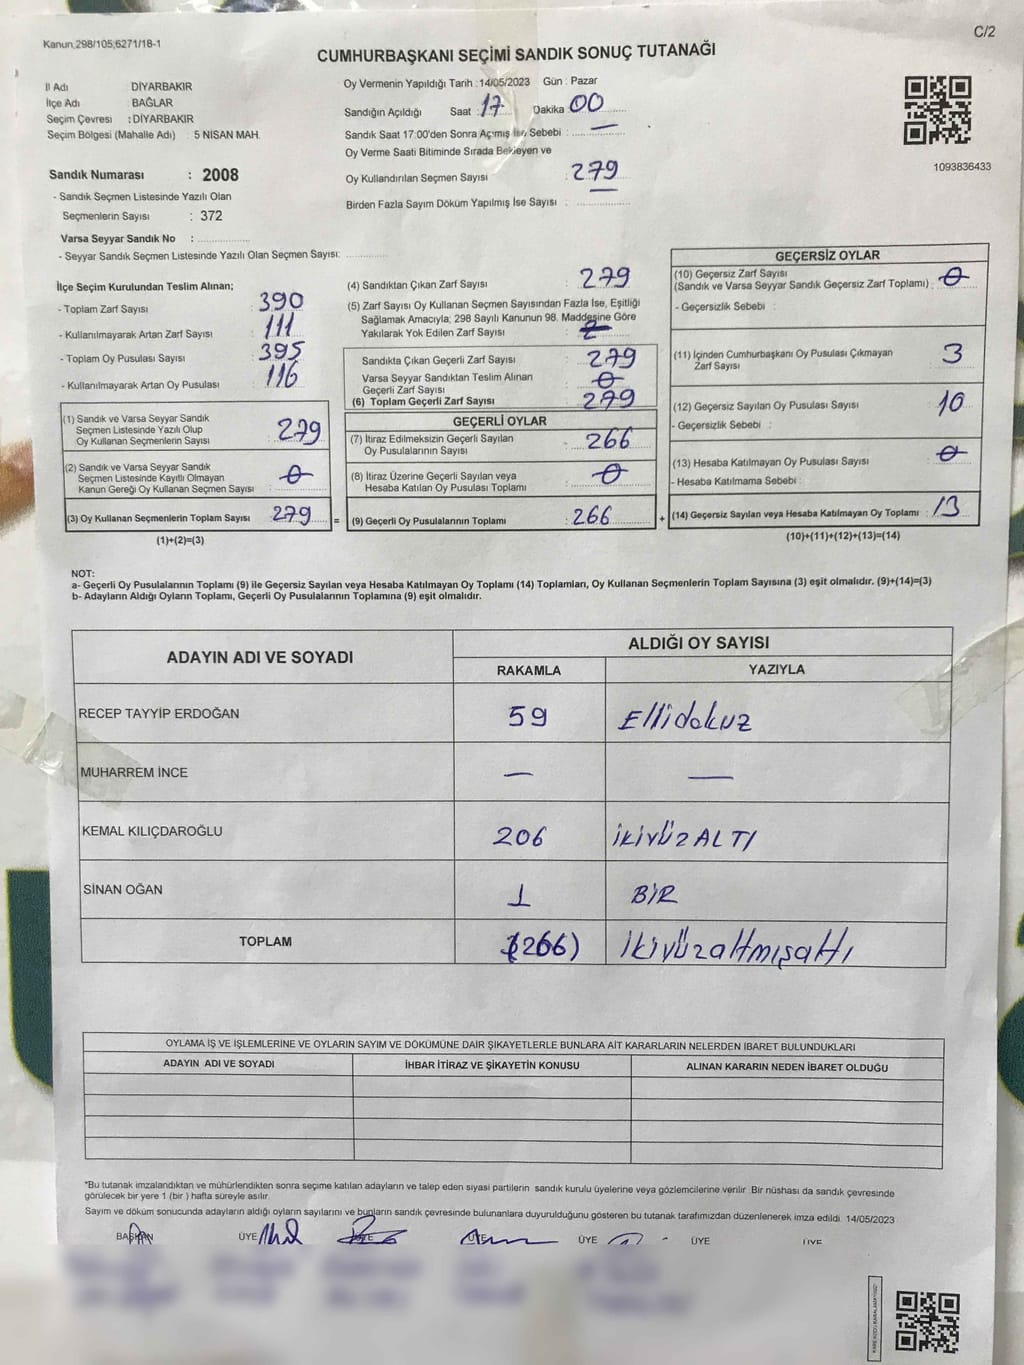 Kanun,298/105;6271/18-1
C/2
CUMHURBAŞKANI SEÇİMİ SANDIK SONUÇ TUTANAĞI
İl Adı DİYARBAKIR
İlçe Adı BAĞLAR
Seçim Çevresi : DİYARBAKIR
Seçim Bölgesi (Mahalle Adı) : 5 NİSAN MAH.
Sandık Numarası : 2008
- Sandık Seçmen Listesinde Yazılı Olan
Seçmenlerin Sayısı : 372
Varsa Seyyar Sandık No :
- Seyyar Sandık Seçmen Listesinde Yazılı Olan Seçmen Sayısı:
Oy Vermenin Yapıldığı Tarih : 14/05/2023 Gün : Pazar
Sandığın Açıldığı Saat : 17 Dakika 00
Sandık Saat 17:00'den Sonra Açımış İse Sebebi : —
Oy Verme Saati Bitiminde Sırada Bekleyen ve
Oy Kullandırılan Seçmen Sayısı : 279
Birden Fazla Sayım Döküm Yapılmış İse Sayısı : —
1093836433
İlçe Seçim Kurulundan Teslim Alınan;
- Toplam Zarf Sayısı : 390
- Kullanılmayarak Artan Zarf Sayısı : 111
- Toplam Oy Pusulası Sayısı : 395
- Kullanılmayarak Artan Oy Pusulası : 116
(1) Sandık ve Varsa Seyyar Sandık
Seçmen Listesinde Yazılı Olup
Oy Kullanan Seçmenlerin Sayısı : 279
(2) Sandık ve Varsa Seyyar Sandık
Seçmen Listesinde Kayıtlı Olmayan
Kanun Gereği Oy Kullanan Seçmen Sayısı : 0
(3) Oy Kullanan Seçmenlerin Toplam Sayısı : 279
(1)+(2)=(3)
(4) Sandıktan Çıkan Zarf Sayısı : 279
(5) Zarf Sayısı Oy Kullanan Seçmen Sayısından Fazla İse, Eşitliği
Sağlamak Amacıyla; 298 Sayılı Kanunun 98. Maddesine Göre
Yakılarak Yok Edilen Zarf Sayısı :
Sandıkta Çıkan Geçerli Zarf Sayısı : 279
Varsa Seyyar Sandıktan Teslim Alınan
Geçerli Zarf Sayısı : 0
(6) Toplam Geçerli Zarf Sayısı : 279
GEÇERLİ OYLAR
(7) İtiraz Edilmeksizin Geçerli Sayılan
Oy Pusulasının Sayısı : 266
(8) İtiraz Üzerine Geçerli Sayılan veya
Hesaba Katılan Oy Pusulası Toplamı : 0
= (9) Geçerli Oy Pusulalarının Toplamı : 266
GEÇERSİZ OYLAR
(10) Geçersiz Zarf Sayısı
(Sandık ve Varsa Seyyar Sandık Geçersiz Zarf Toplamı) : 0
- Geçersizlik Sebebi :
(11) İçinden Cumhurbaşkanı Oy Pusulası Çıkmayan
Zarf Sayısı : 3
(12) Geçersiz Sayılan Oy Pusulası Sayısı : 10
- Geçersizlik Sebebi :
(13) Hesaba Katılmayan Oy Pusulası Sayısı : 0
- Hesaba Katılmama Sebebi :
+ (14) Geçersiz Sayılan veya Hesaba Katılmayan Oy Toplamı : 13
(10)+(11)+(12)+(13)=(14)
NOT:
a- Geçerli Oy Pusulalarının Toplamı (9) ile Geçersiz Sayılan veya Hesaba Katılmayan Oy Toplamı (14) Toplamları, Oy Kullanan Seçmenlerin Toplam Sayısına (3) eşit olmalıdır. (9)+(14)=(3)
b- Adayların Aldığı Oyların Toplamı, Geçerli Oy Pusulalarının Toplamına (9) eşit olmalıdır.
ADAYIN ADI VE SOYADI ALDIĞI OY SAYISI
RAKAMLA YAZIYLA
RECEP TAYYİP ERDOĞAN 59 Ellidokuz
MUHARREM İNCE — —
KEMAL KILIÇDAROĞLU 206 İKİYÜZALTI
SİNAN OĞAN 1 BİR
TOPLAM (266) İkiyüzaltmışaltı
OYLAMA İŞ VE İŞLEMLERİNE VE OYLARIN SAYIM VE DÖKÜMÜNE DAİR ŞİKAYETLERLE BUNLARA AİT KARARLARIN NELERDEN İBARET BULUNDUKLARI
ADAYIN ADI VE SOYADI İHBAR İTİRAZ VE ŞİKAYETİN KONUSU ALINAN KARARIN NEDEN İBARET OLDUĞU
*Bu tutanak imzalandıktan ve mühürlendikten sonra seçime katılan adayların ve talep eden siyasi partilerin sandık kurulu üyelerine veya gözlemcilerine verilir Bir nüshası da sandık çevresinde
görülecek bir yere 1 (bir ) hafta süreyle asılır.
Sayım ve döküm sonucunda adayların aldığı oyların sayılarını ve bunların sandık çevresinde bulunanlara duyurulduğunu gösteren bu tutanak tarafımızdan düzenlenerek imza edildi. 14/05/2023
BAŞKAN ÜYE ÜYE ÜYE ÜYE ÜYE ÜYE